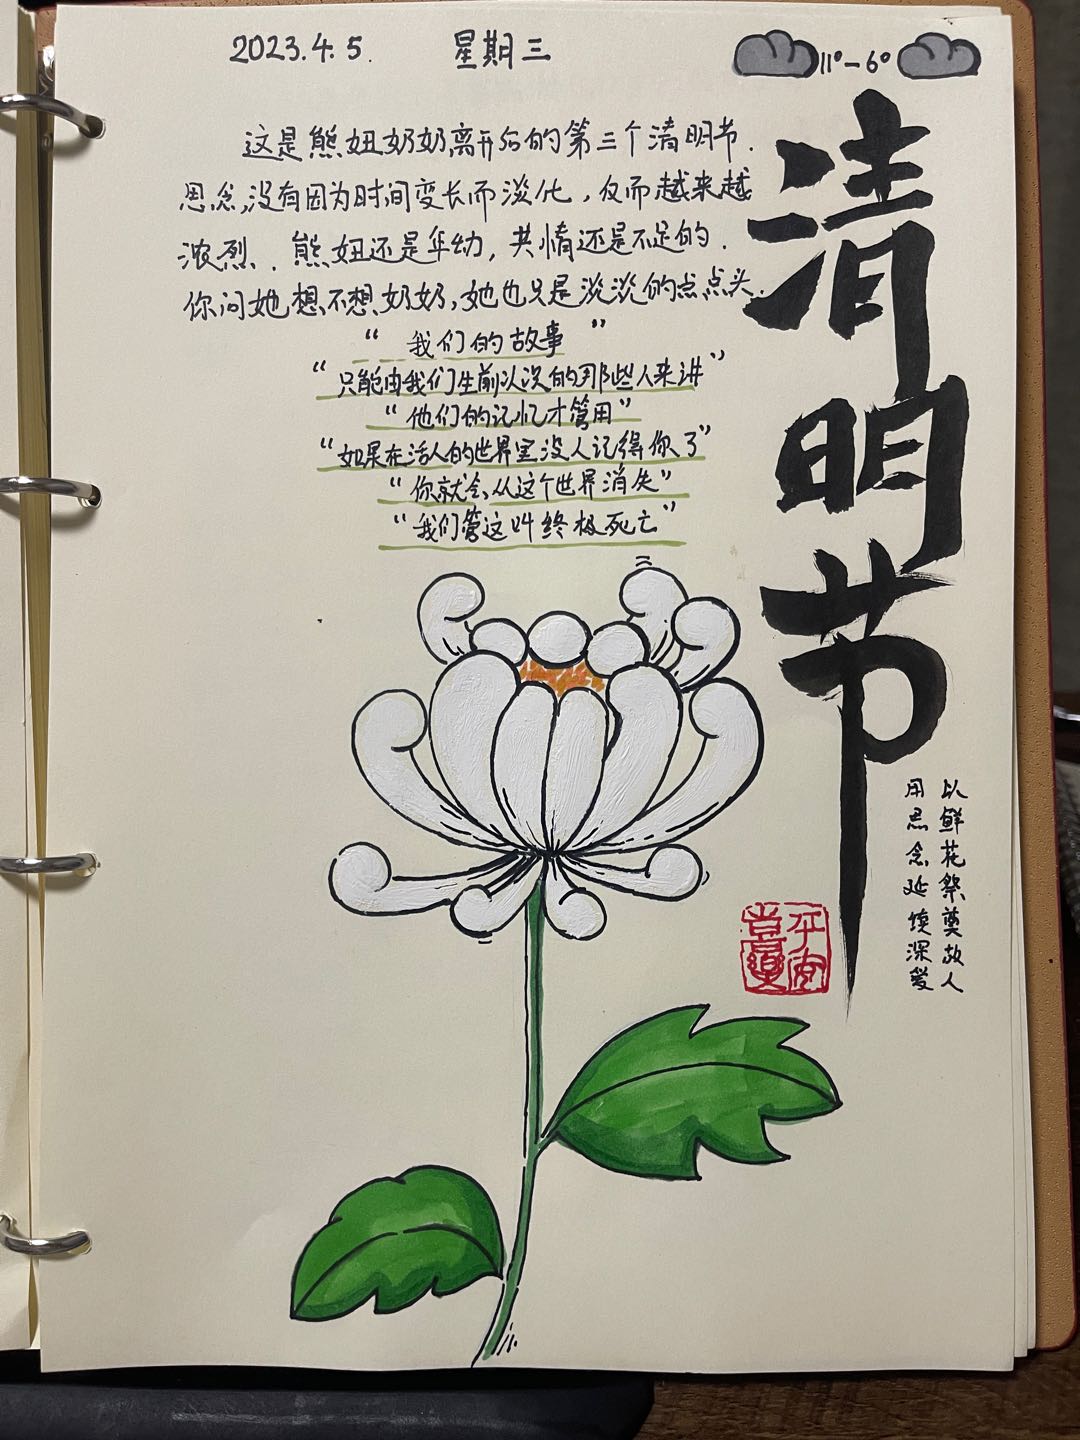 2023.4.5. 星期三
11°-6°
清明节
这是熊妞奶奶离开后的第三个清明节.
思念,没有因为时间变长而淡化,反而越来越
浓烈.熊妞还是年幼,共情还是不足的.
你问她想不想奶奶,她也只是淡淡的点点头.
“我们的故事”
“只能由我们生前认识的那些人来讲”
“他们的记忆才管用”
“如果在活人的世界里没人记得你了”
“你就会从这个世界消失”
“我们管这叫终极死亡”
以鲜花祭奠故人
用思念延续深爱
平安
喜乐